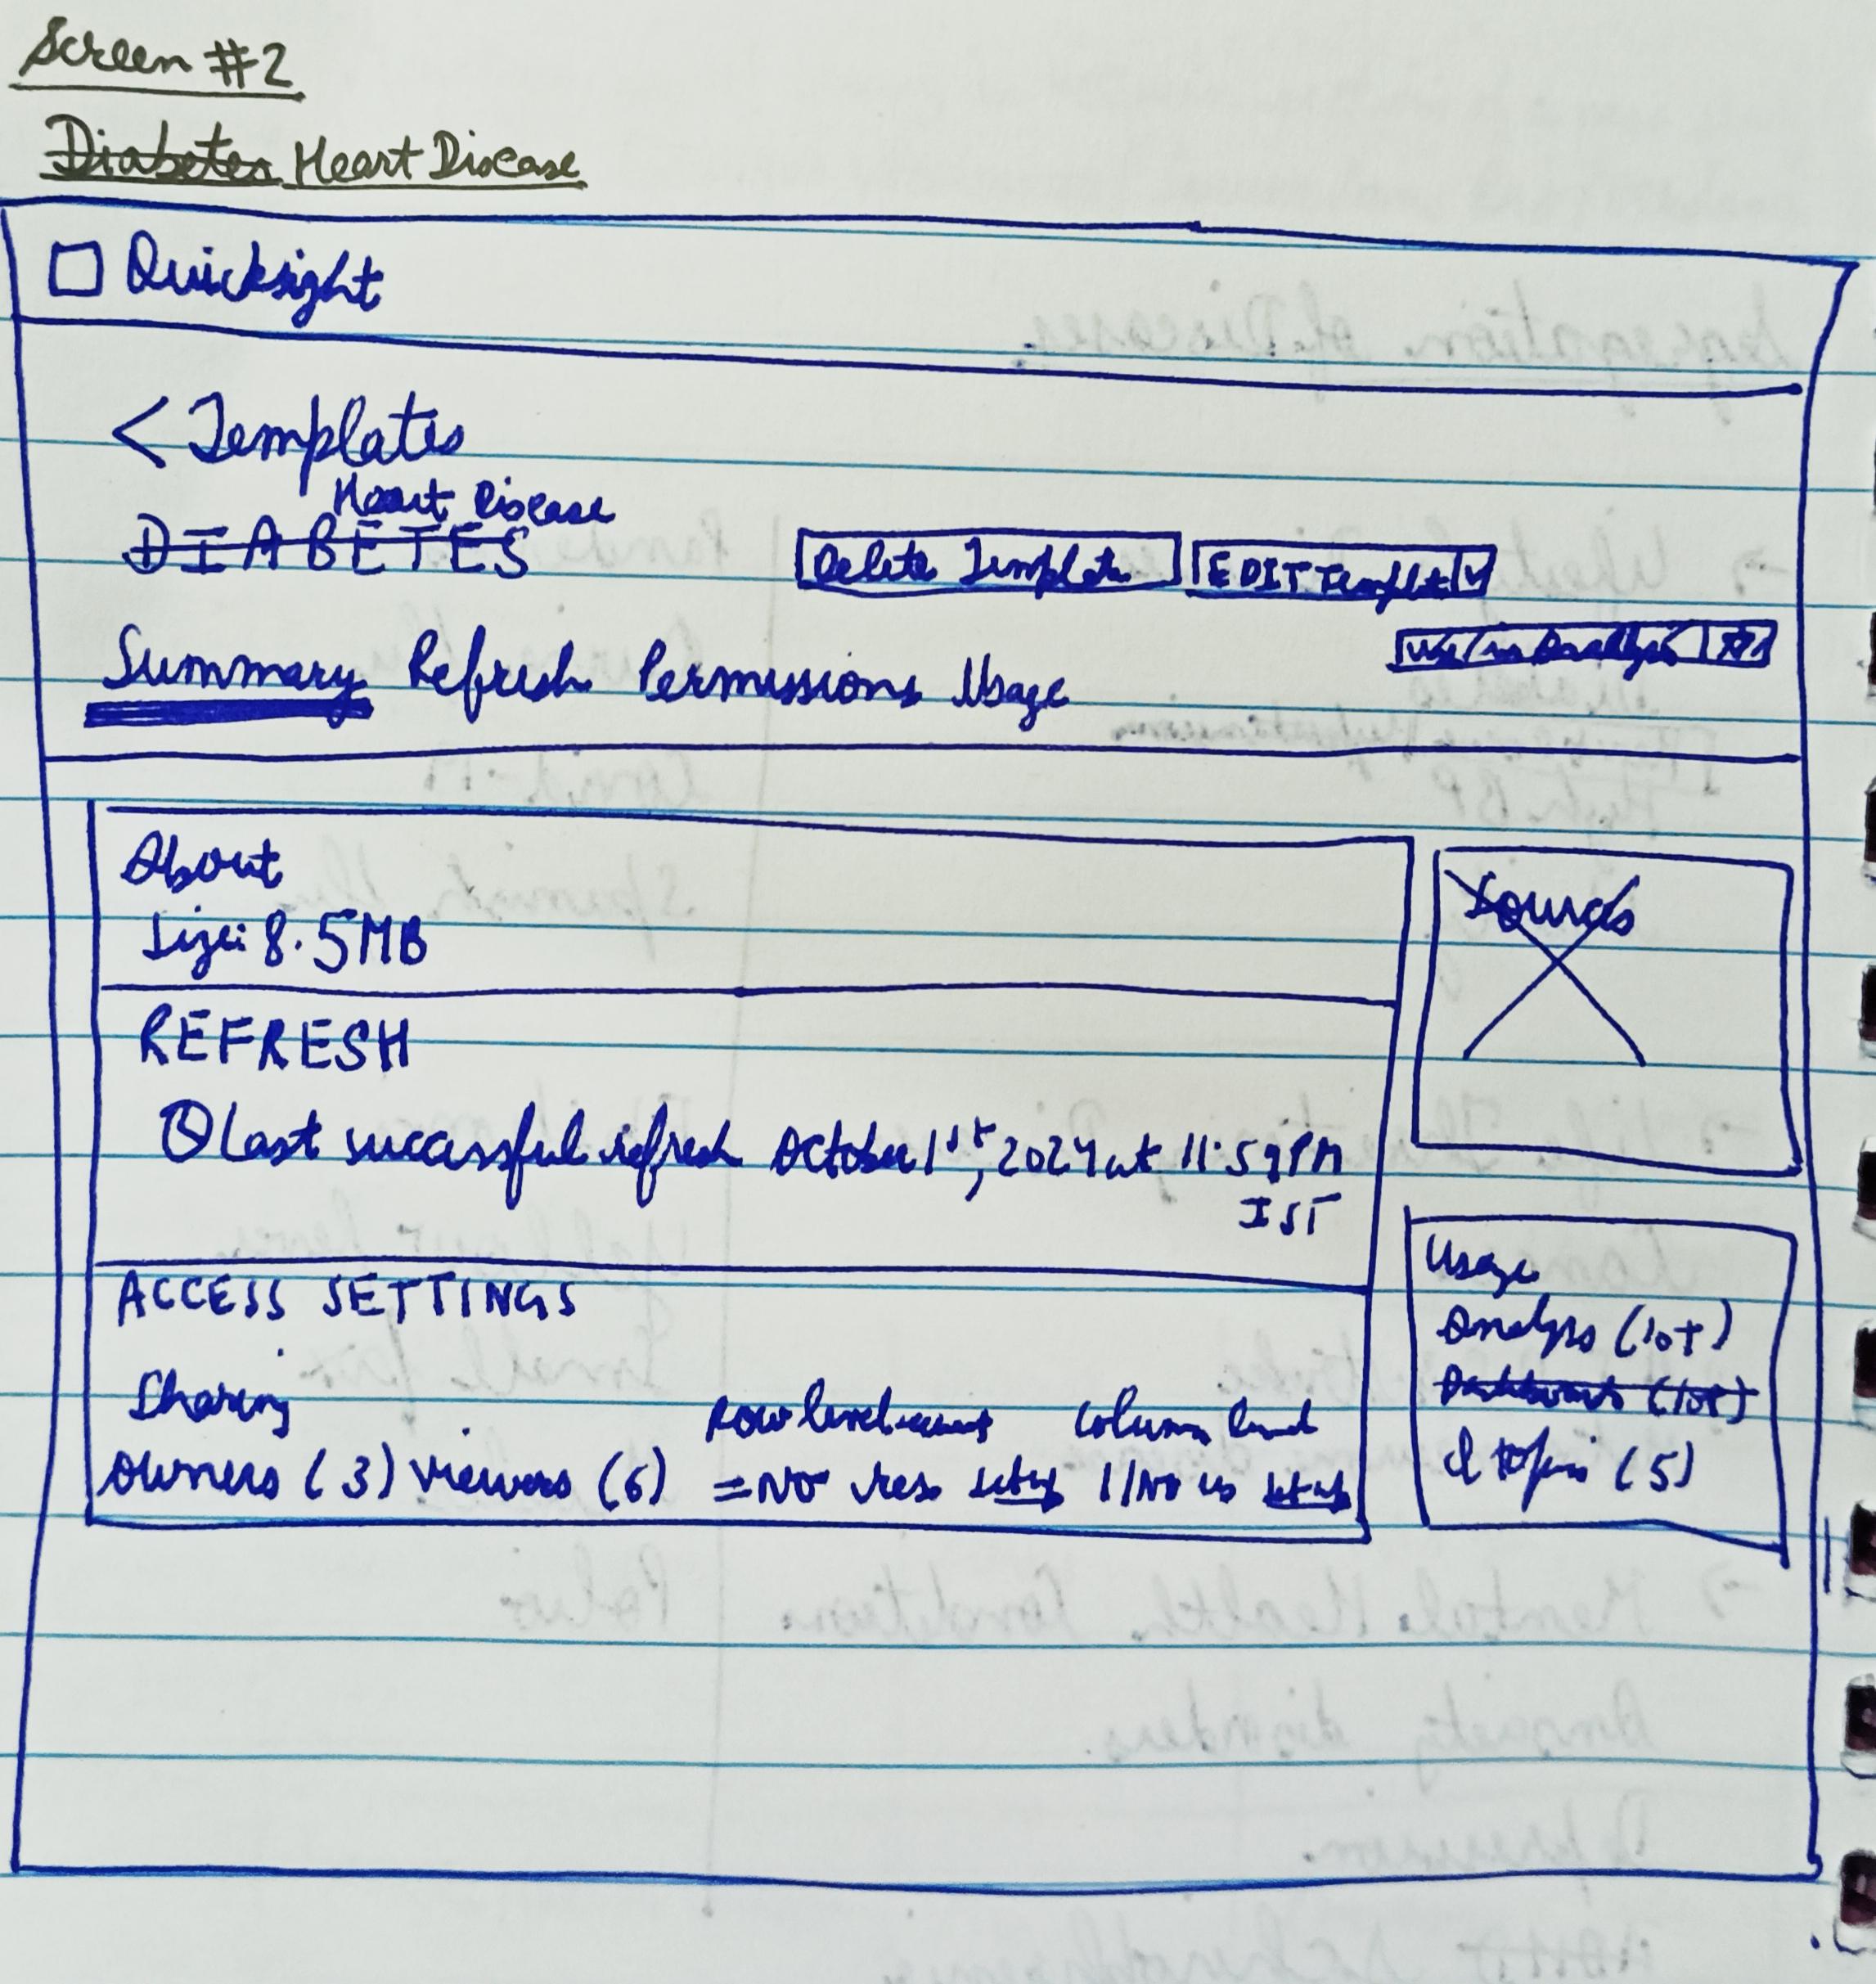 Screen #2
Diabetes Heart Disease
Quicksight
< Templates
Heart Disease
DIABETES
Delete Template EDIT Template
Use in Analysis
Summary Refresh Permissions Usage
About
Size: 8.5MB
Sources
REFRESH
Last successful refresh October 1st, 2024 at 11:59PM
IST
Usage
Analysis (10+)
Dashboards (10+)
Topics (5)
ACCESS SETTINGS
Sharing Row level Column level
Owners (3) Viewers (6) = No res setup No setup